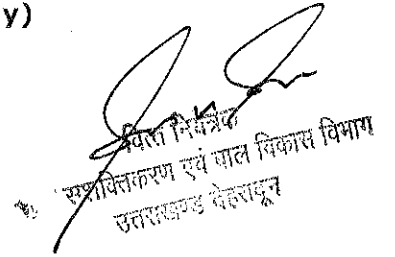 y)
वित्त नियंत्रक
सशक्तिकरण एवं बाल विकास विभाग
उत्तराखण्ड देहरादून